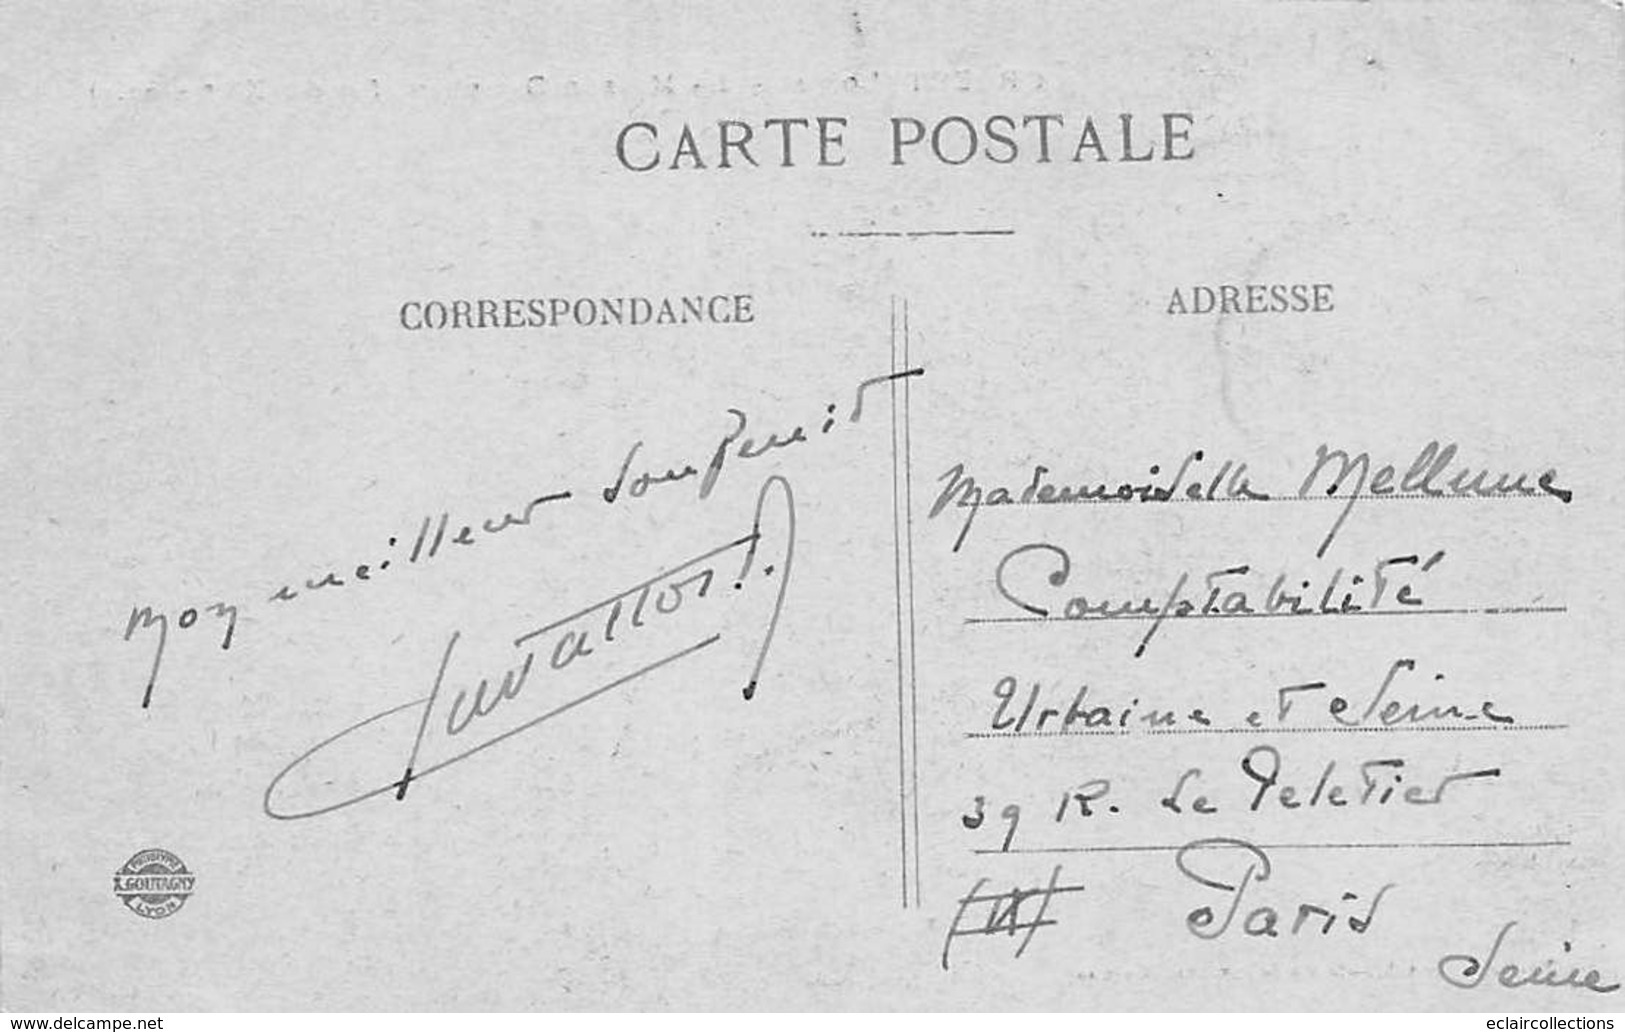 CARTE POSTALE
CORRESPONDANCE
ADRESSE
Mon meilleur souvenir
Mademoiselle Mellune
Comptabilité
Urbaine et Seine
39 R. Le Peletier
Paris
Seine
PHOTOTYPIE
A. GOUTAGNY
LYON
www.delcampe.net
eclaircollections